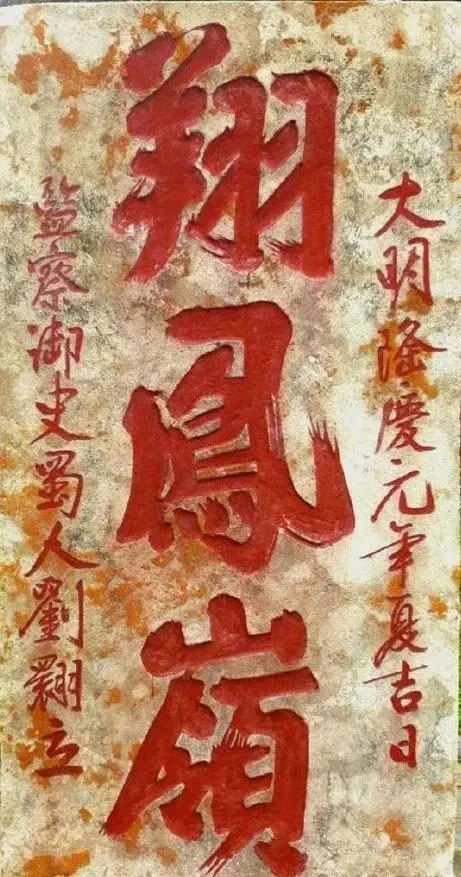 大明隆慶元年夏吉日
翔鳳嶺
監察御史蜀人劉翾立